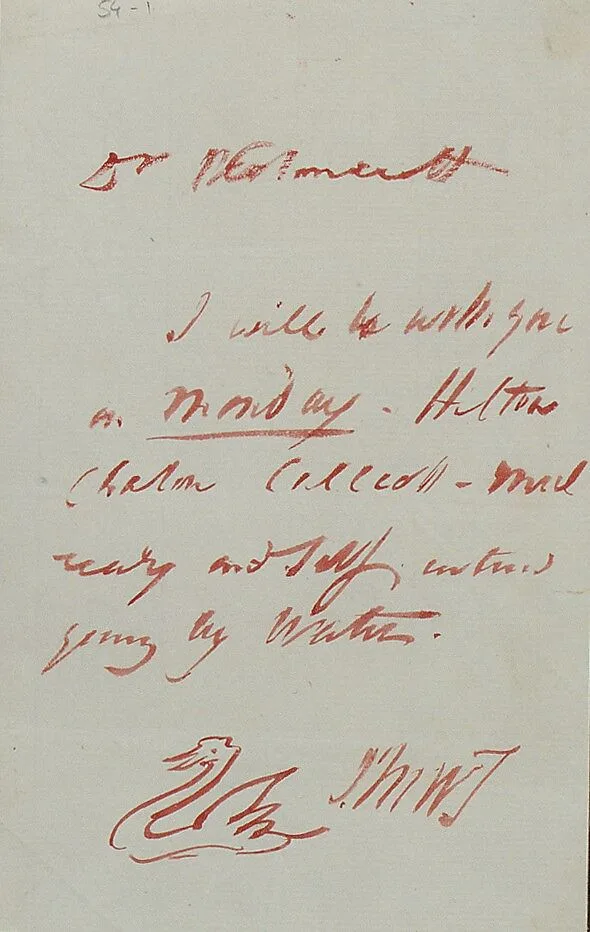 54-1
Dr
I will be with you
on Monday - Hilton
Chalon Callcott - Mul
ready and Self intend
going by Water.
JMWT